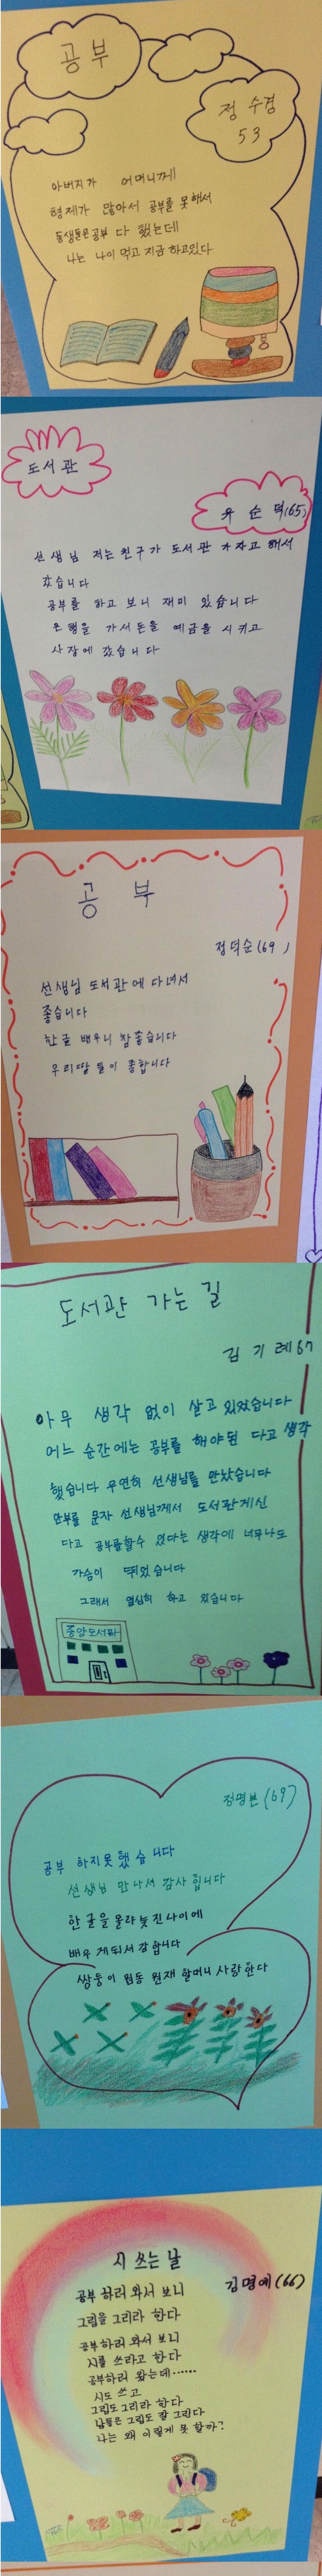 공부
정수경
53
아버지가 어머니께
형제가 많아서 공부를 못해서
동생들은공부 다 했는데
나는 나이 먹고 지금 하고있다
도서관
유순덕(65)
선생님 저는 친구가 도서관 가자고 해서
갔습니다
공부를 하고 보니 재미 있습니다
은행을 가서돈을 예금을 시키고
시장에 갔습니다
공부
정덕순(69)
선생님 도서관에 다녀서
좋습니다
한글 배우니 참좋습니다
우리딸들이 좋합니다
도서관 가는 길
김기례67
아무 생각 없이 살고 있었습니다
어느 순간에는 공부를 해야 된 다고 생각
했습니다 우연히 선생님를 만났습니다
안부를 문자 선생님께서 도서관게신
다고 공부를할수 있다는 생각에 너무나도
가슴이 뛰었습니다
그래서 열심히 하고 있습니다
중앙도서관
정명분(69)
공부 하지못했습니다
선생님 만나서 감사합니다
한글을 몰라 늦진나이에
배우게되서 감합니다
쌍둥이 원동 원재 할머니 사랑한다
시 쓰는 날
김명예(66)
공부 하러 와서 보니
그림을 그리라 한다
공부하러 와서 보니
시를 쓰라고 한다
공부하러 왔는데······
시도 쓰고
그림도그리라 한다
남들은 그림도 잘 그린다
나는 왜 이렇게 못 할까?